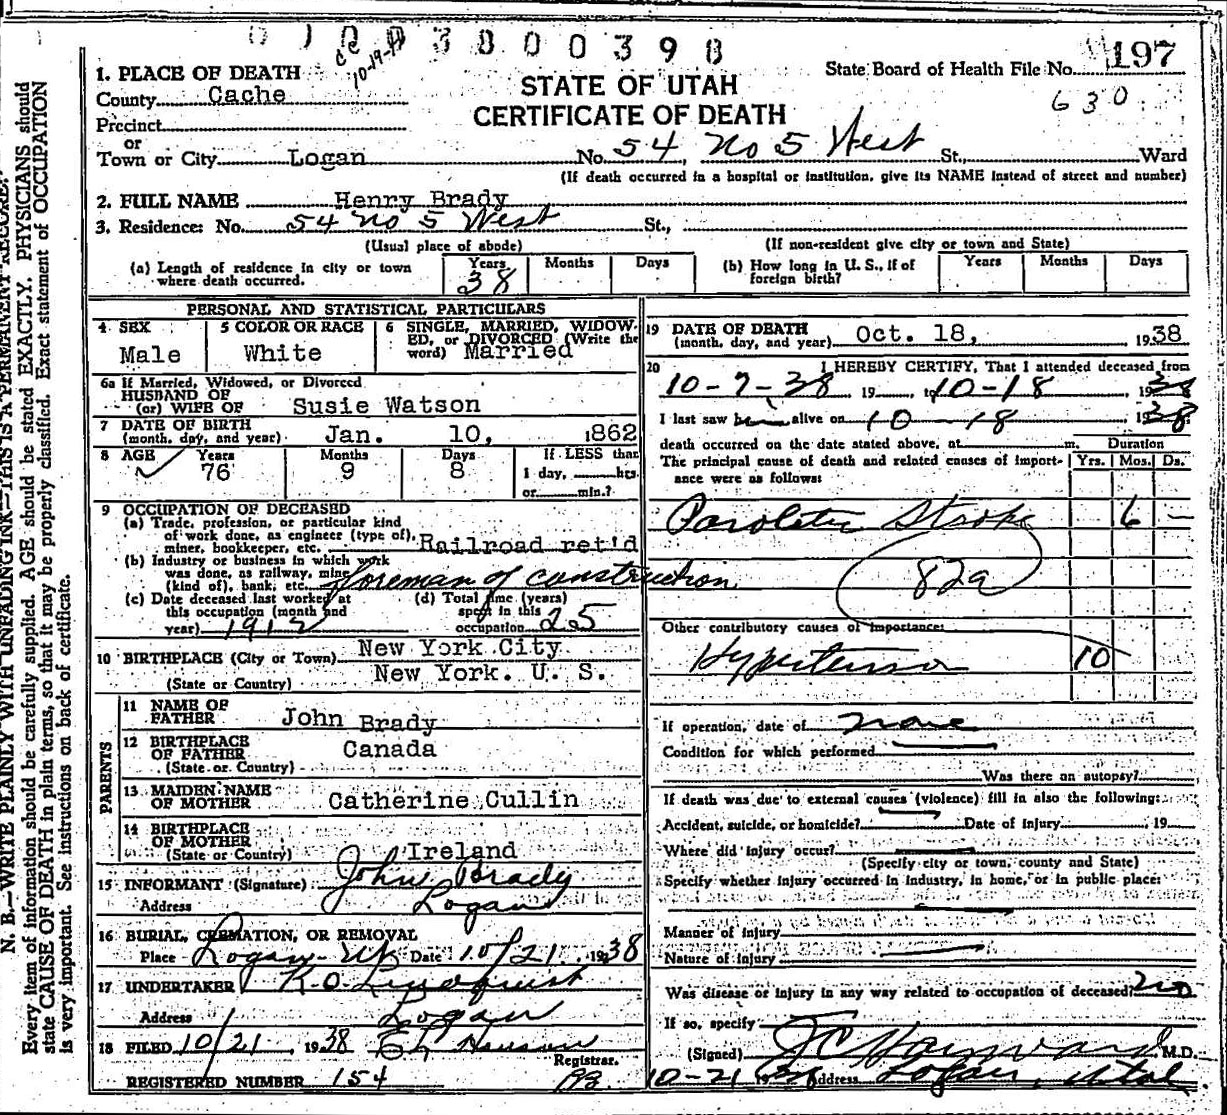 3800398
10-19-
197
1. PLACE OF DEATH
STATE OF UTAH
CERTIFICATE OF DEATH
State Board of Health File No. 197
630
County Cache
Precinct
or
Town or City Logan No. 54 No 5 West St., Ward
(If death occurred in a hospital or institution, give its NAME instead of street and number)
2. FULL NAME Henry Brady
3. Residence: No. 54 No 5 West St.,
(Usual place of abode) (If non-resident give city or town and State)
(a) Length of residence in city or town where death occurred. Years 38 Months Days
(b) How long in U. S., if of foreign birth? Years Months Days
PERSONAL AND STATISTICAL PARTICULARS
4 SEX Male
5 COLOR OR RACE White
6 SINGLE, MARRIED, WIDOWED, or DIVORCED (Write the word) Married
6a If Married, Widowed, or Divorced
HUSBAND OF
(or) WIFE OF Susie Watson
7 DATE OF BIRTH
(month, day, and year) Jan. 10, 1862
8 AGE Years 76 Months 9 Days 8 If LESS than 1 day, hrs. or min.?
9 OCCUPATION OF DECEASED
(a) Trade, profession, or particular kind
of work done, as engineer (type of),
miner, bookkeeper, etc. Railroad ret'd
(b) Industry or business in which work
was done, as railway, mine
(kind of), bank, etc. foreman of construction
(c) Date deceased last worked at
this occupation (month and
year) 1912
(d) Total time (years)
spent in this
occupation 25
10 BIRTHPLACE (City or Town) New York City
(State or Country) New York. U. S.
PARENTS
11 NAME OF
FATHER John Brady
12 BIRTHPLACE
OF FATHER Canada
(State or Country)
13 MAIDEN NAME
OF MOTHER Catherine Cullin
14 BIRTHPLACE
OF MOTHER
(State or Country) Ireland
15 INFORMANT (Signature) John Brady
Address Logan
16 BURIAL, CREMATION, OR REMOVAL
Place Logan-Ut Date 10/21 1938
17 UNDERTAKER K. O. Lindquist
Address Logan
18 FILED 10/21, 1938 Hanson
Registrar.
REGISTERED NUMBER 154
19 DATE OF DEATH
(month, day, and year) Oct. 18, 1938
20 I HEREBY CERTIFY, That I attended deceased from
10-7-38 19 to 10-18, 1938
I last saw him alive on 10-18 1938
death occurred on the date stated above, at m. Duration
The principal cause of death and related causes of importance were as follows: Yrs. Mos. Ds.
Stroke 6 -
82a
Other contributory causes of importance:
10
If operation, date of none
Condition for which performed
Was there an autopsy?
If death was due to external causes (violence) fill in also the following:
Accident, suicide, or homicide? Date of injury 19
Where did injury occur?
(Specify city or town, county and State)
Specify whether injury occurred in industry, in home, or in public place:
Manner of injury
Nature of injury
Was disease or injury in any way related to occupation of deceased? no
If so, specify
(Signed) J C Hayward M.D.
10-21 1938 Address Logan, Utah
N. B.—WRITE PLAINLY WITH UNFADING INK—THIS IS A PERMANENT RECORD.
Every item of information should be carefully supplied. AGE should be stated EXACTLY. PHYSICIANS should
state CAUSE OF DEATH in plain terms, so that it may be properly classified. Exact statement of OCCUPATION
is very important. See instructions on back of certificate.